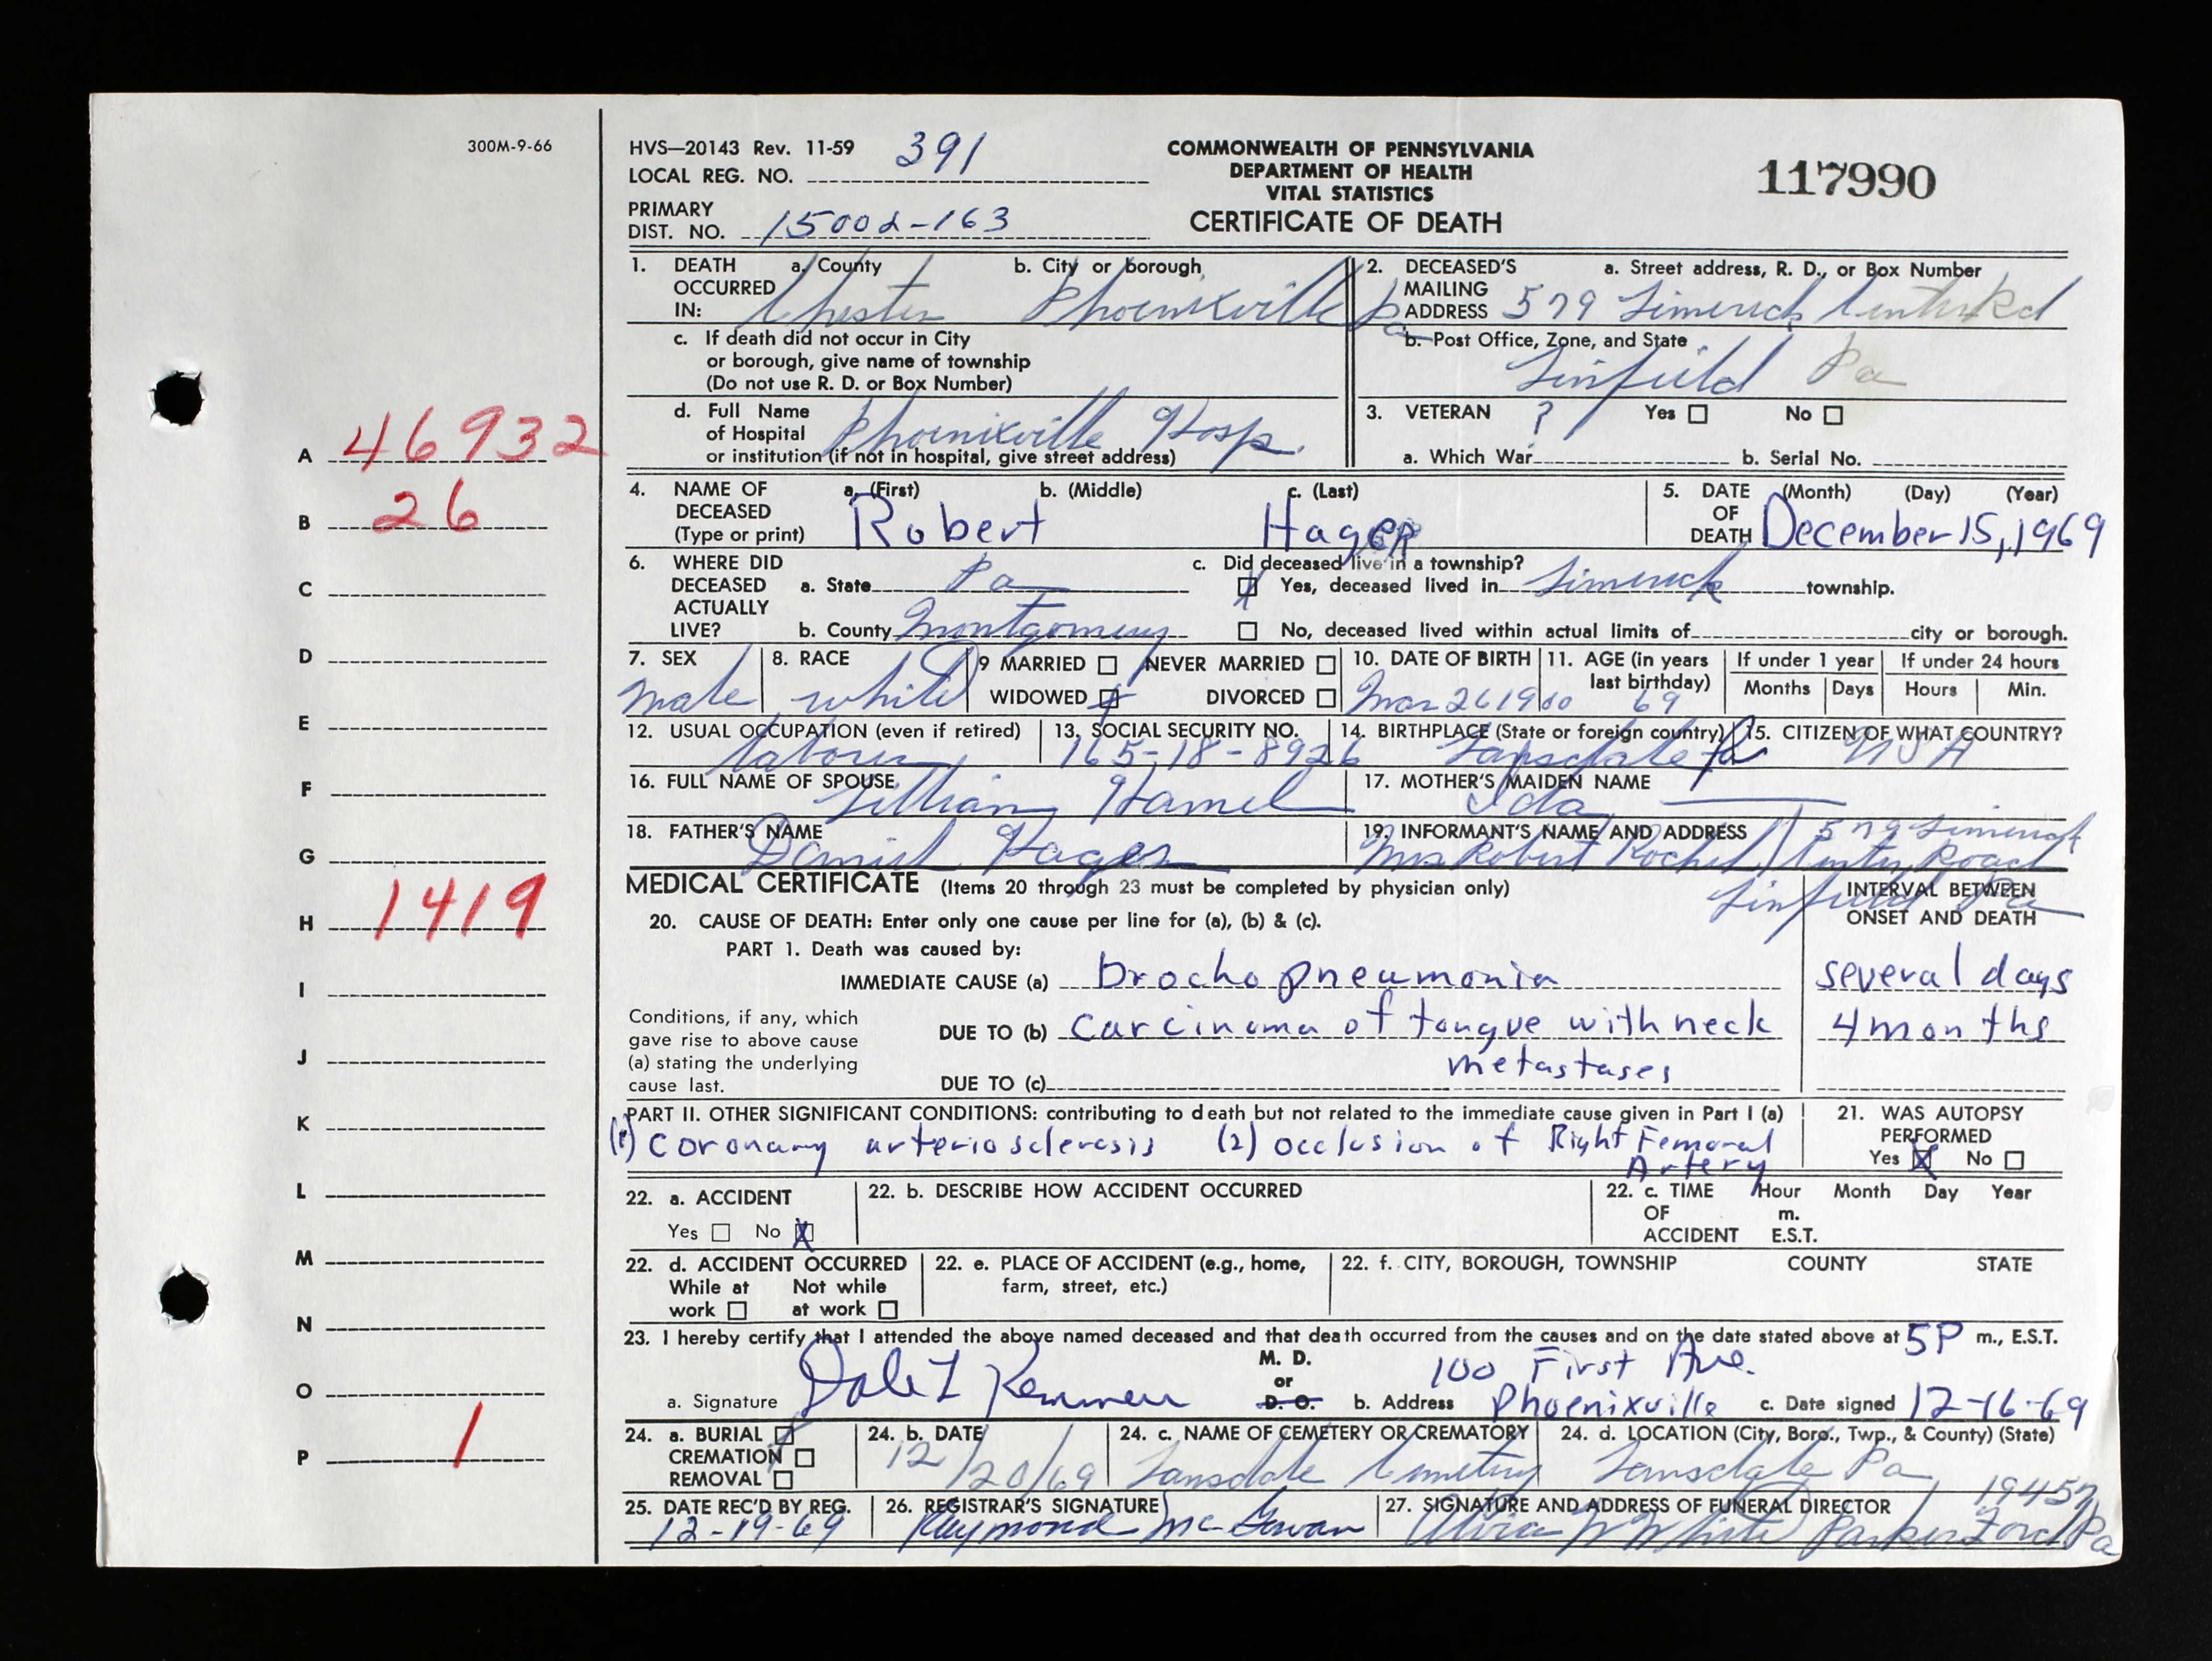 300M-9-66
HVS—20143 Rev. 11-59
LOCAL REG. NO. 391
PRIMARY
DIST. NO. 15002-163
COMMONWEALTH OF PENNSYLVANIA
DEPARTMENT OF HEALTH
VITAL STATISTICS
CERTIFICATE OF DEATH
117990
1. DEATH OCCURRED IN: a. County b. City or borough
Chester Phoenixville Pa
c. If death did not occur in City
or borough, give name of township
(Do not use R. D. or Box Number)
d. Full Name
of Hospital Phoenixville Hosp.
or institution (if not in hospital, give street address)
2. DECEASED'S MAILING ADDRESS a. Street address, R. D., or Box Number
579 Limerick Center Rd
b. Post Office, Zone, and State
Linfield Pa
3. VETERAN ? Yes No
a. Which War b. Serial No.
4. NAME OF DECEASED (Type or print) a. (First) b. (Middle) c. (Last)
Robert Hager
5. DATE OF DEATH (Month) (Day) (Year)
December 15, 1969
6. WHERE DID DECEASED ACTUALLY LIVE?
a. State Pa
b. County Montgomery
c. Did deceased live in a township?
X Yes, deceased lived in Limerick township.
No, deceased lived within actual limits of city or borough.
7. SEX
male
8. RACE
white
9 MARRIED NEVER MARRIED
WIDOWED X DIVORCED
10. DATE OF BIRTH
Mar 26 1900
11. AGE (in years
last birthday)
69
If under 1 year
Months Days
If under 24 hours
Hours Min.
12. USUAL OCCUPATION (even if retired)
laborer
13. SOCIAL SECURITY NO.
165-18-8926
14. BIRTHPLACE (State or foreign country)
Lansdale Pa
15. CITIZEN OF WHAT COUNTRY?
USA
16. FULL NAME OF SPOUSE
Lillian Hamel
17. MOTHER'S MAIDEN NAME
Ida
18. FATHER'S NAME
Daniel Hager
19. INFORMANT'S NAME AND ADDRESS
Mrs Robert Rochel 579 Limerick
Center Road
Linfield Pa
MEDICAL CERTIFICATE (Items 20 through 23 must be completed by physician only)
INTERVAL BETWEEN
ONSET AND DEATH
20. CAUSE OF DEATH: Enter only one cause per line for (a), (b) & (c).
PART 1. Death was caused by:
IMMEDIATE CAUSE (a) brochopneumonia several days
Conditions, if any, which
gave rise to above cause
(a) stating the underlying
cause last.
DUE TO (b) carcinoma of tongue with neck 4 months
metastases
DUE TO (c)
PART II. OTHER SIGNIFICANT CONDITIONS: contributing to death but not related to the immediate cause given in Part I (a)
(1) coronary arteriosclerosis (2) occlusion of Right Femoral
Artery
21. WAS AUTOPSY
PERFORMED
Yes X No
22. a. ACCIDENT
Yes No X
22. b. DESCRIBE HOW ACCIDENT OCCURRED
22. c. TIME OF ACCIDENT Hour Month Day Year
m.
E.S.T.
22. d. ACCIDENT OCCURRED
While at work Not while at work
22. e. PLACE OF ACCIDENT (e.g., home,
farm, street, etc.)
22. f. CITY, BOROUGH, TOWNSHIP COUNTY STATE
23. I hereby certify that I attended the above named deceased and that death occurred from the causes and on the date stated above at 5P m., E.S.T.
a. Signature Dale M. D. or D. O.
b. Address 100 First Ave.
Phoenixville
c. Date signed 12-16-69
24. a. BURIAL X
CREMATION
REMOVAL
24. b. DATE
12/20/69
24. c. NAME OF CEMETERY OR CREMATORY
Lansdale Cemetery
24. d. LOCATION (City, Boro., Twp., & County) (State)
Lansdale Pa
25. DATE REC'D BY REG.
12-19-69
26. REGISTRAR'S SIGNATURE
Raymond McGowan
27. SIGNATURE AND ADDRESS OF FUNERAL DIRECTOR
White Parker Ford Pa
19457
A 46932
B 26
C
D
E
F
G
H 1419
I
J
K
L
M
N
O
P 1